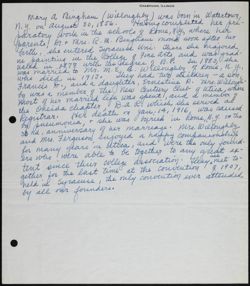 CHAMPAIGN, ILLINOIS
Mary A. Bingham (Willoughby) was born in Watertown,
N.Y. on August 30, 1856. Having completed her pre-
paratory work in the schools of Rome, N.Y., where her
parents, Dr. & Mrs. Bingham moved soon after her
birth, she entered Syracuse Univ. There she majored
in painting in the College of Fine Arts and was grad-
uated in 1879 with the degree B.P. In 1880, she
was married to Mr. Willoughby of Rome, N.Y.,
who died in 1912. They had two children - a son
Francis B., and a daughter Ernestine B. Mrs. Willough-
by was a member of the New Century Club of Utica, where
most of her married life was spent, and a member of
the Oneida chapter, D.A.R. which she served as
Registrar. Her death on Jan. 14, 1916, was caused
by pneumonia, & she was buried in Rome, N.Y. on the
anniversary of her marriage. Mrs. Willoughby
and Mrs. Ferguson enjoyed a happy companionship
for many years in Utica, and were the only found-
ers who were able to be together to any great ex-
tent since their college association. They met to-
gether for the last time at the convention of 1907,
held in Syracuse, the only convention ever attended
by all our founders.